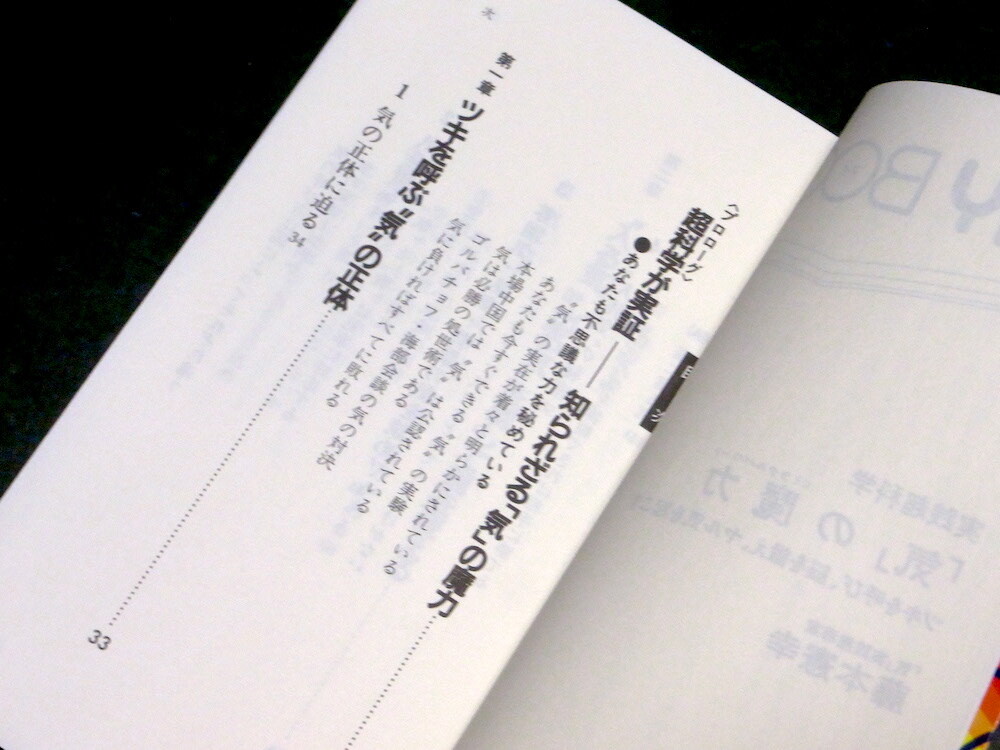 〈プロローグ〉
超科学が実証――知られざる「気」の魔力
●あなたも不思議な力を秘めている
“気”の実在が着々と明らかにされている
あなたも今すぐできる“気”の実験
本場中国では“気”は公認されている
気は必勝の処世術である
ゴルバチョフ・海部会談の気の対決
気に負ければすべてに敗れる
第一章 ツキを呼ぶ“気”の正体 33
1 気の正体に迫る 34
次
実践超科学
「気」の魔力
藤本憲幸